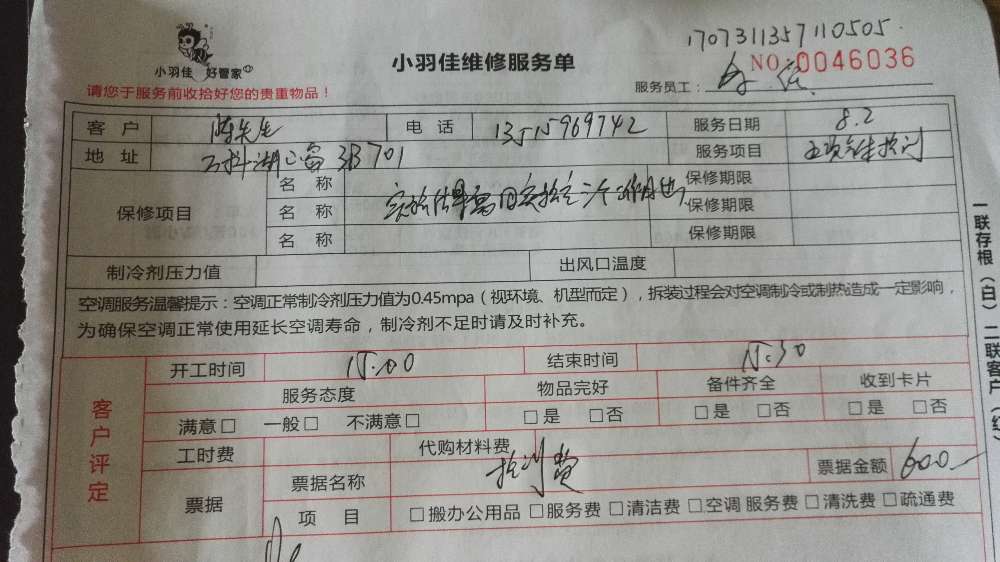 17073113571 10505
小羽佳 好管家
小羽佳维修服务单
NO 0046036
请您于服务前收拾好您的贵重物品！
服务员工：
客户 陈先生 电话 13515969742 服务日期 8.2
地址 3B701 服务项目
保修项目 名称 保修期限
名称 保修期限
名称 保修期限
制冷剂压力值 出风口温度
空调服务温馨提示：空调正常制冷剂压力值为0.45mpa（视环境、机型而定），拆装过程会对空调制冷或制热造成一定影响，
为确保空调正常使用延长空调寿命，制冷剂不足时请及时补充。
客户评定
开工时间 15:00 结束时间 15:30
服务态度 物品完好 备件齐全 收到卡片
满意□ 一般□ 不满意□ □是 □否 □是 □否 □是 □否
工时费 代购材料费
票据 票据名称 检测费 票据金额 600.—
项目 □搬办公用品 □服务费 □清洁费 □空调服务费 □清洗费 □疏通费
一联存根（白）二联客户（红